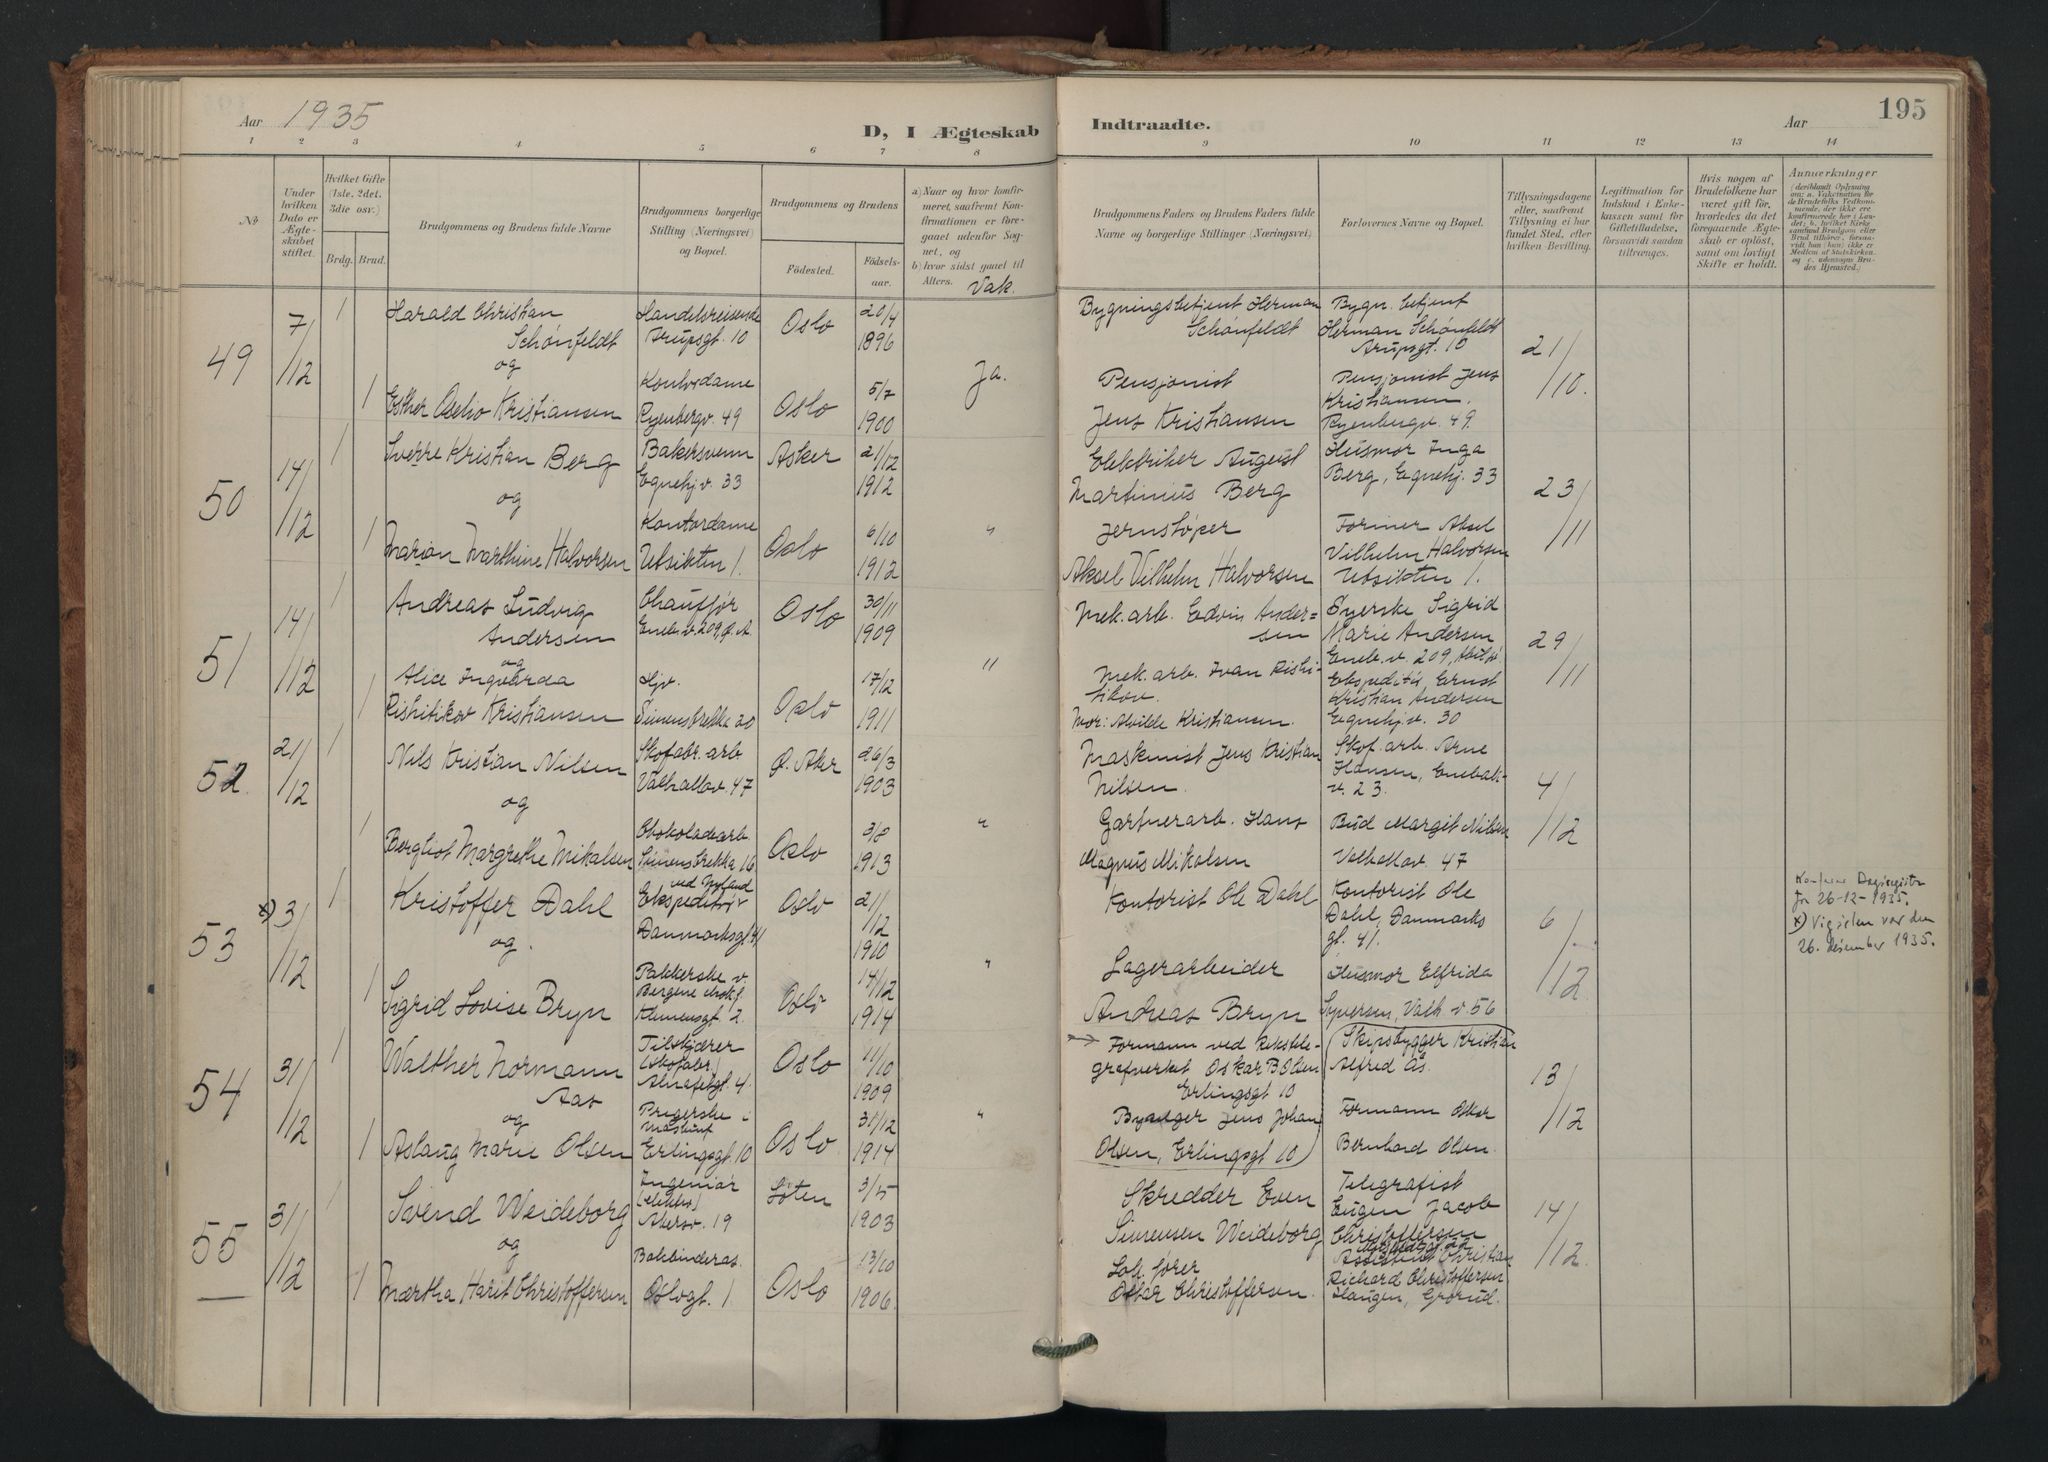 Aar 1935
D, I Ægteskab Indtraadte.
Aar
195
1 2 3 4 5 6 7 8 9 10 11 12 13 14
No.
Under hvilken Dato er Ægteskabet stiftet.
Hvilket Gifte (1ste, 2det, 3die osv.)
Brdg. Brud.
Brudgommens og Brudens fulde Navne
Brudgommens borgerlige Stilling (Næringsvei) og Bopæl.
Brudgommens og Brudens
Fødested.
Fødselsaar.
a) Naar og hvor konfirmeret, saafremt Konfirmationen er foregaaet udenfor Sognet, og
b) hvor sidst gaaet til Alters.
Vak.
Brudgommens Faders og Brudens Faders fulde Navne og borgerlige Stillinger (Næringsvei.)
Forlovernes Navne og Bopæl.
Tillysningsdagene eller, saafremt Tillysning ei har fundet Sted, efter hvilken Bevilling.
Legitimation for Indskud i Enkekassen samt for Giftetilladelse, forsaavidt saadan tiltrænges.
Hvis nogen af Brudefolkene har været gift før, hvorledes da det foregaaende Ægteskab er opløst, samt om lovligt Skifte er holdt.
Anmerkninger
49
7/12
1
Harald Christian
Schønfeldt
og
Handelsreisende
Arupsgt. 10
Oslo
20/4
1896
Bygningsbetjent Herman
Schønfeldt
Bygn. betjent
Herman Schønfeldt
Arupsgt. 10
21/10.
1
Esther Oselio Kristiansen
Kontordame
Ryenbergv. 49
Oslo
5/7
1900
Ja.
Pensjonist
Jens Kristiansen
Pensjonist Jens
Kristiansen.
Ryenbergv. 49.
50
14/12
1
Sverre Kristian Berg
og
Bakersvenn
Egnehjv. 33
Asker
21/12
1912
Elektriker August
Martinius Berg
Husmor Inga
Berg, Egnehj. 33
23/11
1
Marion Marthine Halvorsen
Kontordame
Utsikten 1.
Oslo
6/10
1912
"
Jernstøper
Aksel Vilhelm Halvorsen
Former Aksel
Vilhelm Halvorsen
Utsikten 1.
51
14/12
1
Andreas Ludvig
Andersen
og
Chauffør
Eneb.v. 209, Ø.A.
Oslo
30/11
1909
Mek.arb. Edvin Ander=
sen
Syerske Sigrid
Marie Andersen
Eneb.v. 209,
29/11
1
Alice Ingvarda
Rishitikov Kristiansen
Hjv.
Simenstrekka 20
Oslo
17/12
1911
"
Mek.arb. Ivan Rishi-
tikov.
Mor: Alvilde Kristiansen.
Ekspeditør Ernst
Kristian Andersen
Egnehj.v. 30
52.
21/12
1
Nils Kristian Nilsen
og
Skofabr. arb
Valhallav. 47
Ø. Aker
26/3
1903
Maskinist Jens Kristian
Nilsen.
Skof. arb. Arne
Hansen, Enebak-
v. 23.
4/12
1
Bergliot Margrethe Mikalsen
Chokoladearb.
Simenstrekka 16
Oslo
3/8
1913
"
Gartnerarb. Hans
Magnus Mikalsen
Bud Margit Nilsen
Valhallav 47
53
x) 3/12
1
Kristoffer Dahl
og.
Ekspeditør
Danmarksgt. 41
Oslo
21/12
1910
Kontorist Ole Dahl
Kontorist Ole
Dahl, Danmarks
gt. 41.
6/12
Dagregister
for 26-12-1935.
x) Vigselen var den
26. desember 1935.
1
Sigrid Lovise Bryn
Pakkerske v.
Klemensgt. 2.
Oslo
14/12
1914
"
Lagerarbeider
Andreas Bryn
Husmor Elfrida
Syversen, Valh.v. 56
54
31/12
1
Walther Normann
Aas
og
Tilskjærer
(skofabr.)
Alnafetgt. 4.
Oslo
11/10
1909
Formann ved Rikstele-
grafverket Oskar B Olsen
Erlingsgt 10
Skipsbygger Kristian
Alfred Ås.
13/12
1
Aslaug Marie Olsen
Erlingsgt. 10
Oslo
31/12
1914
"
Jens Johan
Olsen, Erlingsgt 10)
Formann Oskar
Bernhard Olsen.
55
31/12
1
Svend Weideborg
og
Ingeniør
(elektro)
Akersv. 19
Løten
3/5
1903
Skredder Even
Simensen Weideborg
Telegrafist
Eugen Jacob
Christoffersen
14/12.
1
Mærtha Harit Christoffersen
Bokbinderas.
Oslogt. 1
Oslo
13/10
1906.
Lok.fører
Oskar Christoffersen.
Assistent Christian
Richard Christoffersen
Haugen, Grorud.